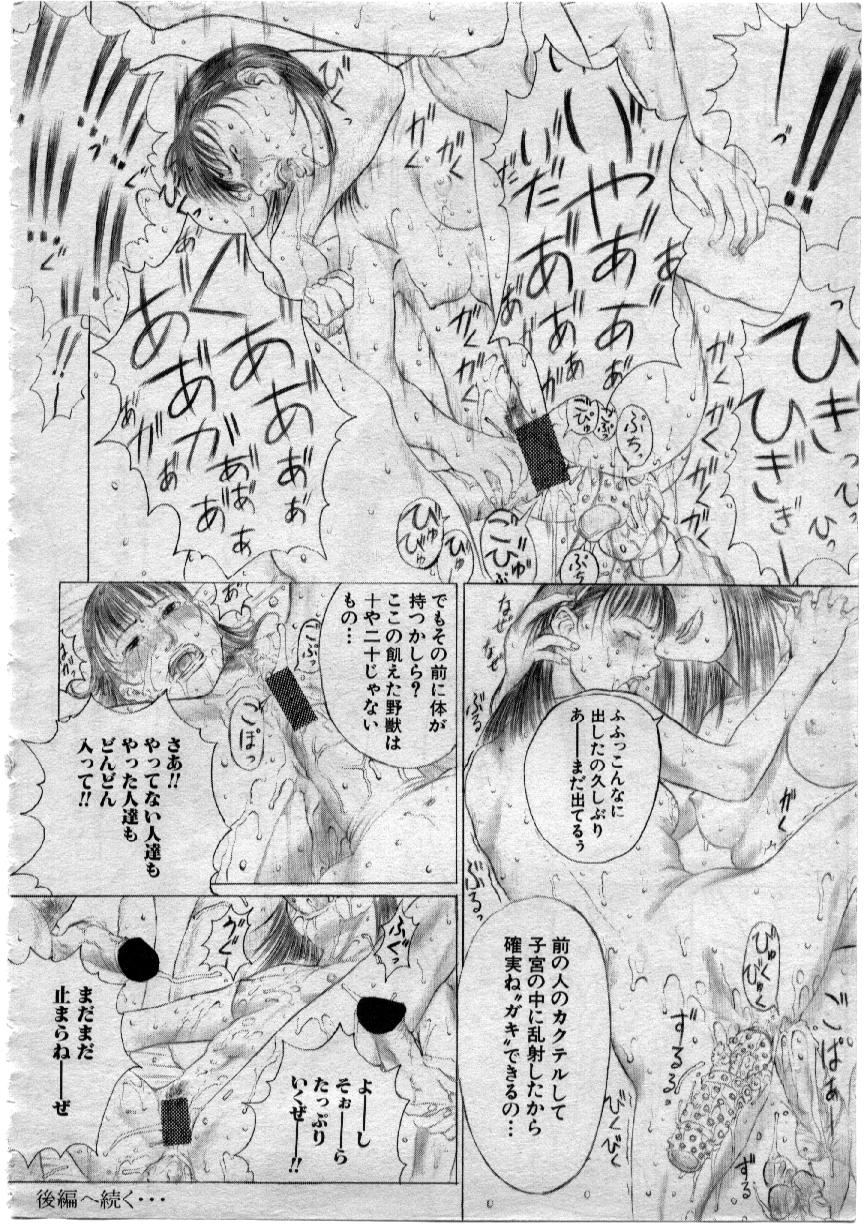 !!
いやあああぁ
いだぁああああ
ひきっ
ひぎぎ
ひっ
ひっ
びくっ
がくがく
がくがく
がくがくがく
ぐあああぁぁ
ああああぁぁあ
あがあああ
ぶちっ
ごぴゅ
びゅびゅ
びゅ
ぶち
なぜなぜ
ぶる
ぶるっ
がく
ふふっこんなに
出したの久しぶり
あ——まだ出てるぅ
前の人のカクテルして
子宮の中に乱射したから
確実ね〝ガキ〟できるの…
びゅくびゅく
ごぱぁ
ずるる
ずぶ
びくびく
でもその前に体が
持つかしら?
ここの飢えた野獣は
十や二十じゃない
もの…
ごぶっ
ごぽっ
さあ!!
やってない人達も
やった人達も
どんどん
入って!!
ふぐっ
よ——し
そぉ——ら
たっぷり
いくぜ——!!
まだまだ
止まらね——ぜ
後編へ続く・・・